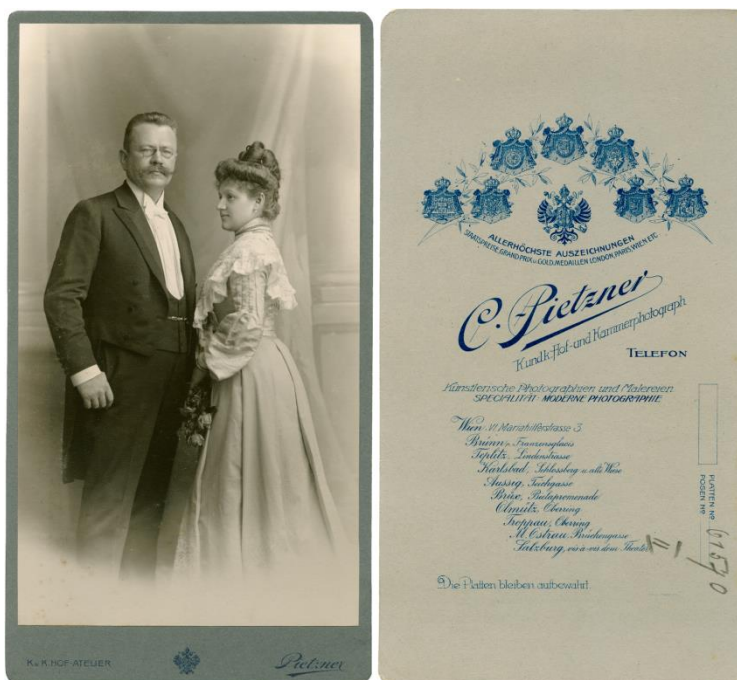 K.u.K. HOF-ATELIER
Pietzner
ALLERHÖCHSTE AUSZEICHNUNGEN
STAATSPREISE, GRAND PRIX u. GOLD. MEDAILLEN LONDON, PARIS, WIEN, ETC.
C. Pietzner
K. und k. Hof- und Kammerphotograph
TELEFON
Künstlerische Photographien und Malereien
SPECIALITÄT MODERNE PHOTOGRAPHIE
Wien, VI. Mariahilferstrasse 3
Brünn, Franzensglacis
Teplitz, Lindenstrasse
Karlsbad, Schlossberg u. alte Wiese
Aussig, Teichgasse
Brüx, Bielapromenade
Olmütz, Oberring
Troppau, Oberring
M. Ostrau, Brückengasse
Salzburg, vis-à-vis dem Theater
Die Platten bleiben aufbewahrt.
PLATTEN No
POSEN No
II